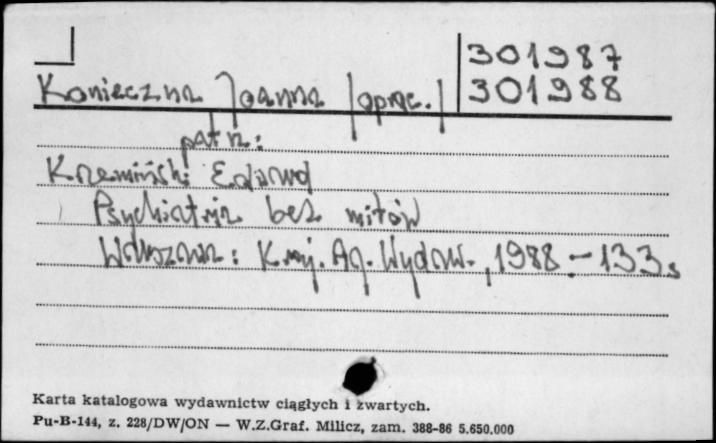 301987
Konieczna Joanna /oprac./ 301988
patrz:
Krzemiński Edward
Psychiatria bez mitów
Warszawa: Kraj. Ag. Wydaw., 1988. - 133 s
Karta katalogowa wydawnictw ciągłych i zwartych.
Pu-B-144, z. 228/DW/ON — W.Z.Graf. Milicz, zam. 388-86 5.650.000